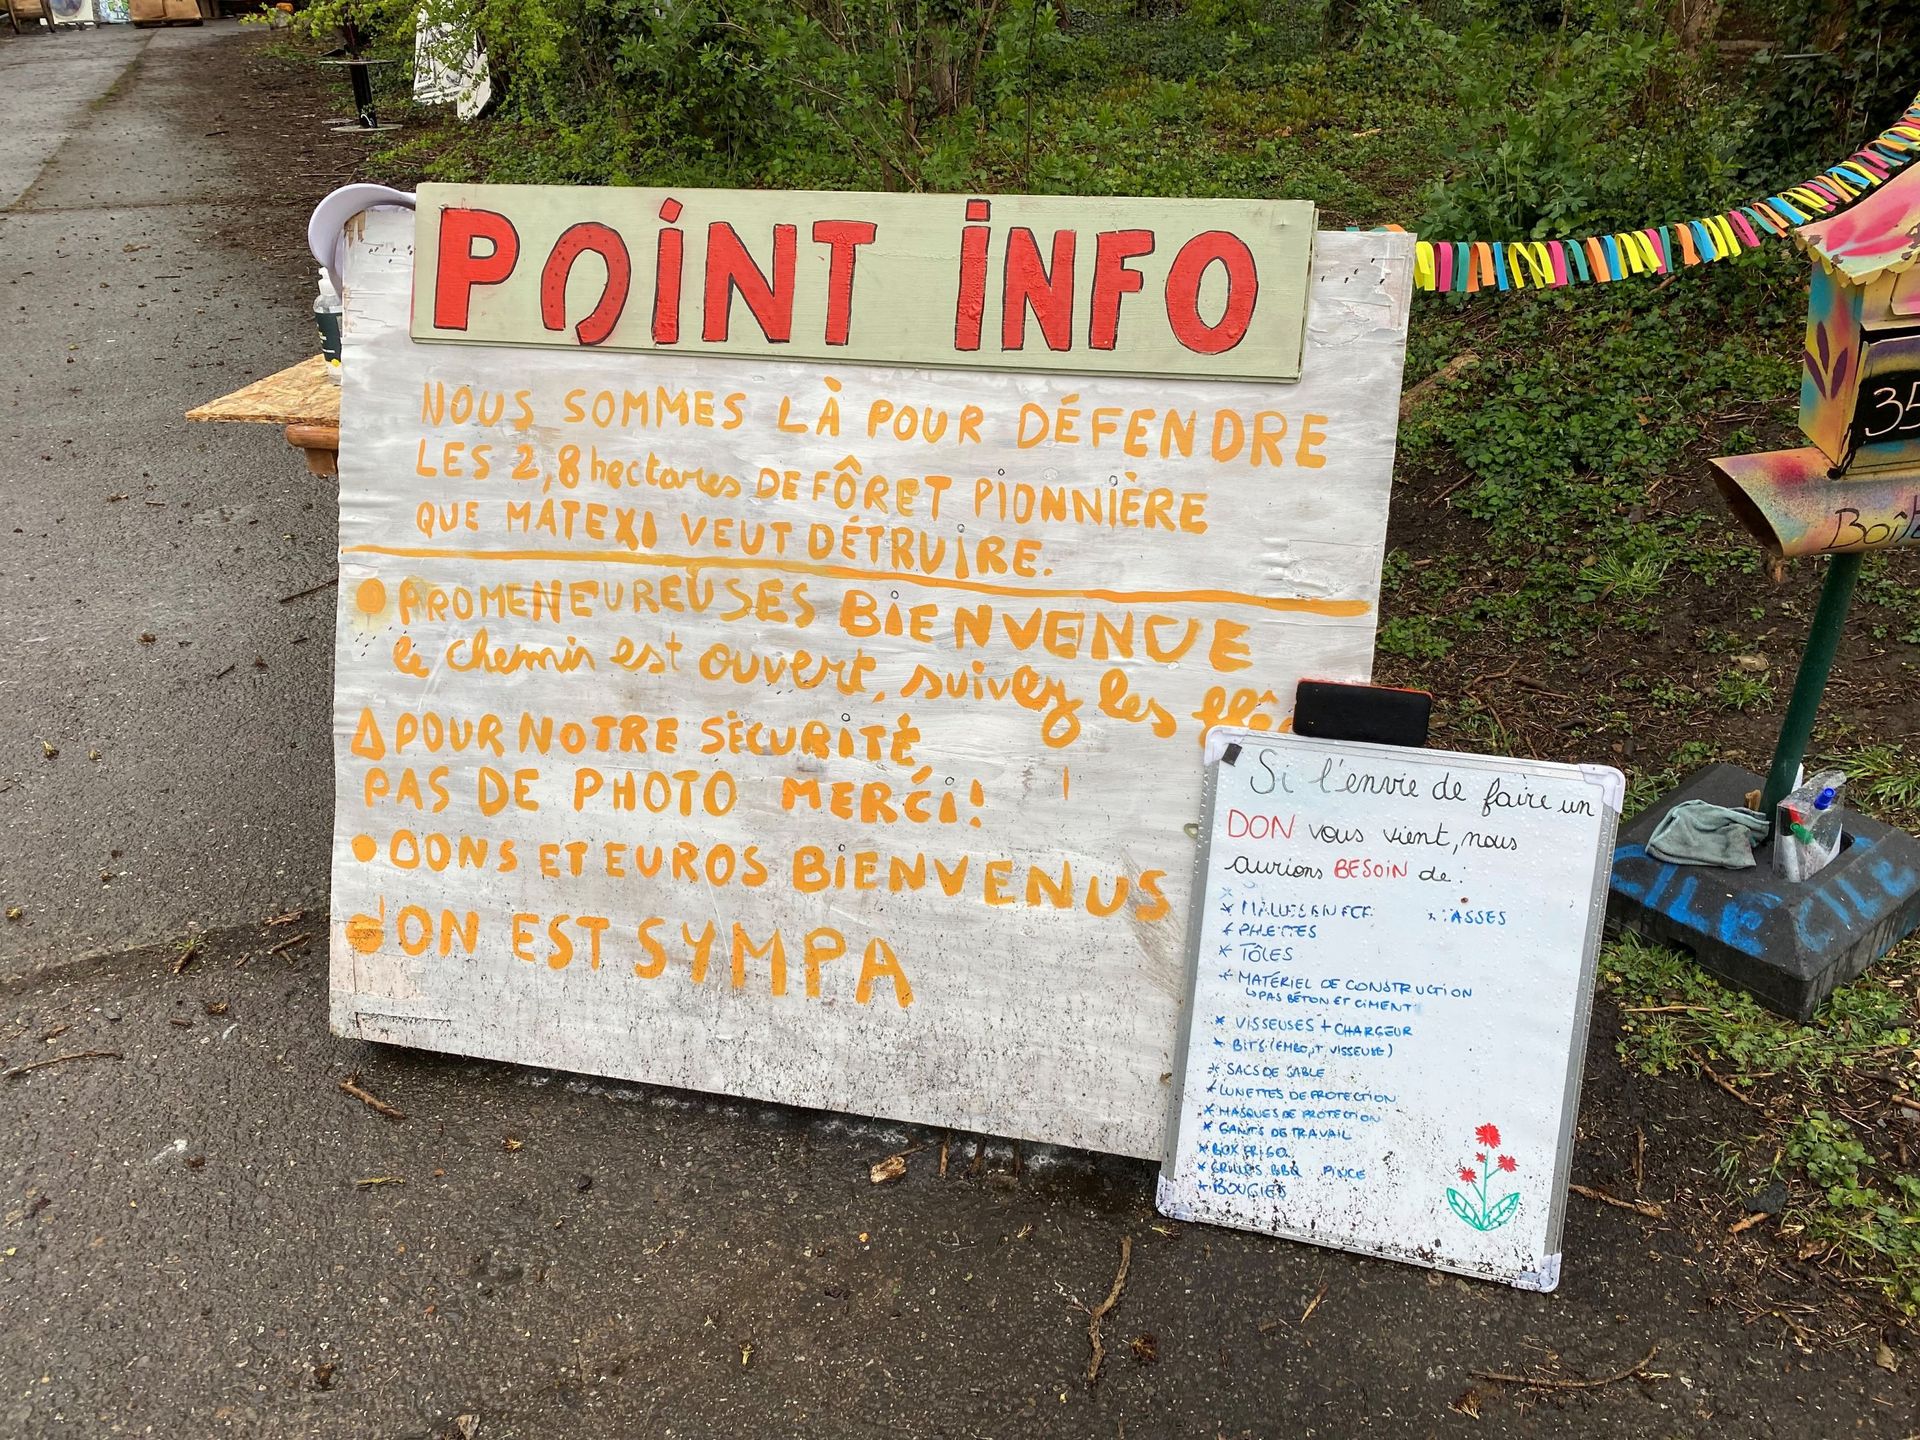 POINT INFO
NOUS SOMMES LÀ POUR DÉFENDRE
LES 2,8 hectares DE FÔRET PIONNIÈRE
QUE MATEXI VEUT DÉTRUIRE.
PROMENEUREUSES BIENVENUE
le chemin est ouvert, suivez les
POUR NOTRE SÉCURITÉ,
PAS DE PHOTO MERCI!
DONS ET EUROS BIENVENUS
ON EST SYMPA
Si l'envie de faire un
DON vous vient, nous
aurions BESOIN de:
* TÔLES
* MATÉRIEL DE CONSTRUCTION
↳ PAS BÉTON ET CIMENT
* VISSEUSES + CHARGEUR
* BITS (EMBOUT VISSEUSE)
* SACS DE SABLE
* LUNETTES DE PROTECTION
* MASQUES DE PROTECTION
* GANTS DE TRAVAIL
* BOX FRIGO
* GRILLES BBQ PINCE
* BOUGIES
35
Boîte